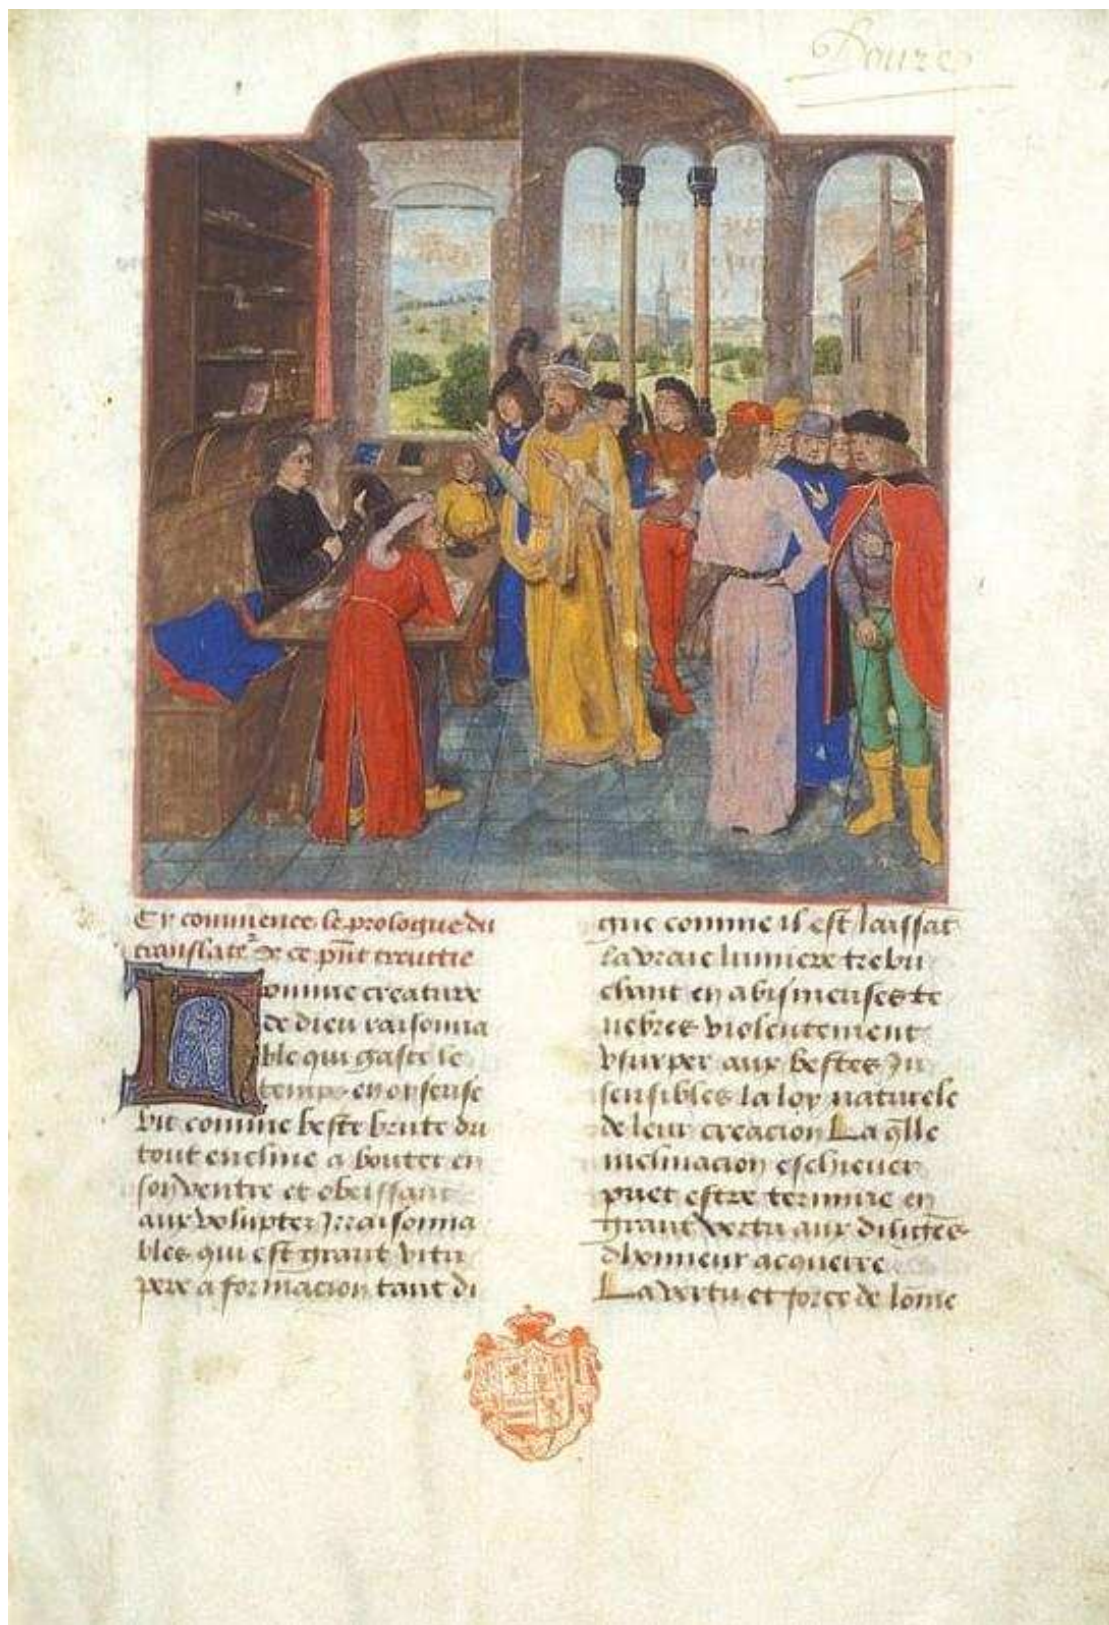 Douze
Cy commence le prologue du
translate² de ce pñt traittie
Homme creature
de dieu raisonna
ble qui gaste le
temps en oyseuse
vit comme beste brute du
tout encline a bouter en
son ventre et obeissant
aux voluptez Irraisonna
bles qui est grant vitu
pere a formacion tant di
gne comme il est laissāt
la vraie lumiere trebu
chant en abismeuses te
nebres violentement
vsurper aux bestes In
sensibles la loy naturele
de leur creacion La q̄lle
inclinacion eschieuer
puet estre terminee en
grant vertu aux diligēs
dhonneur acquerre
La vertu et force de lōme